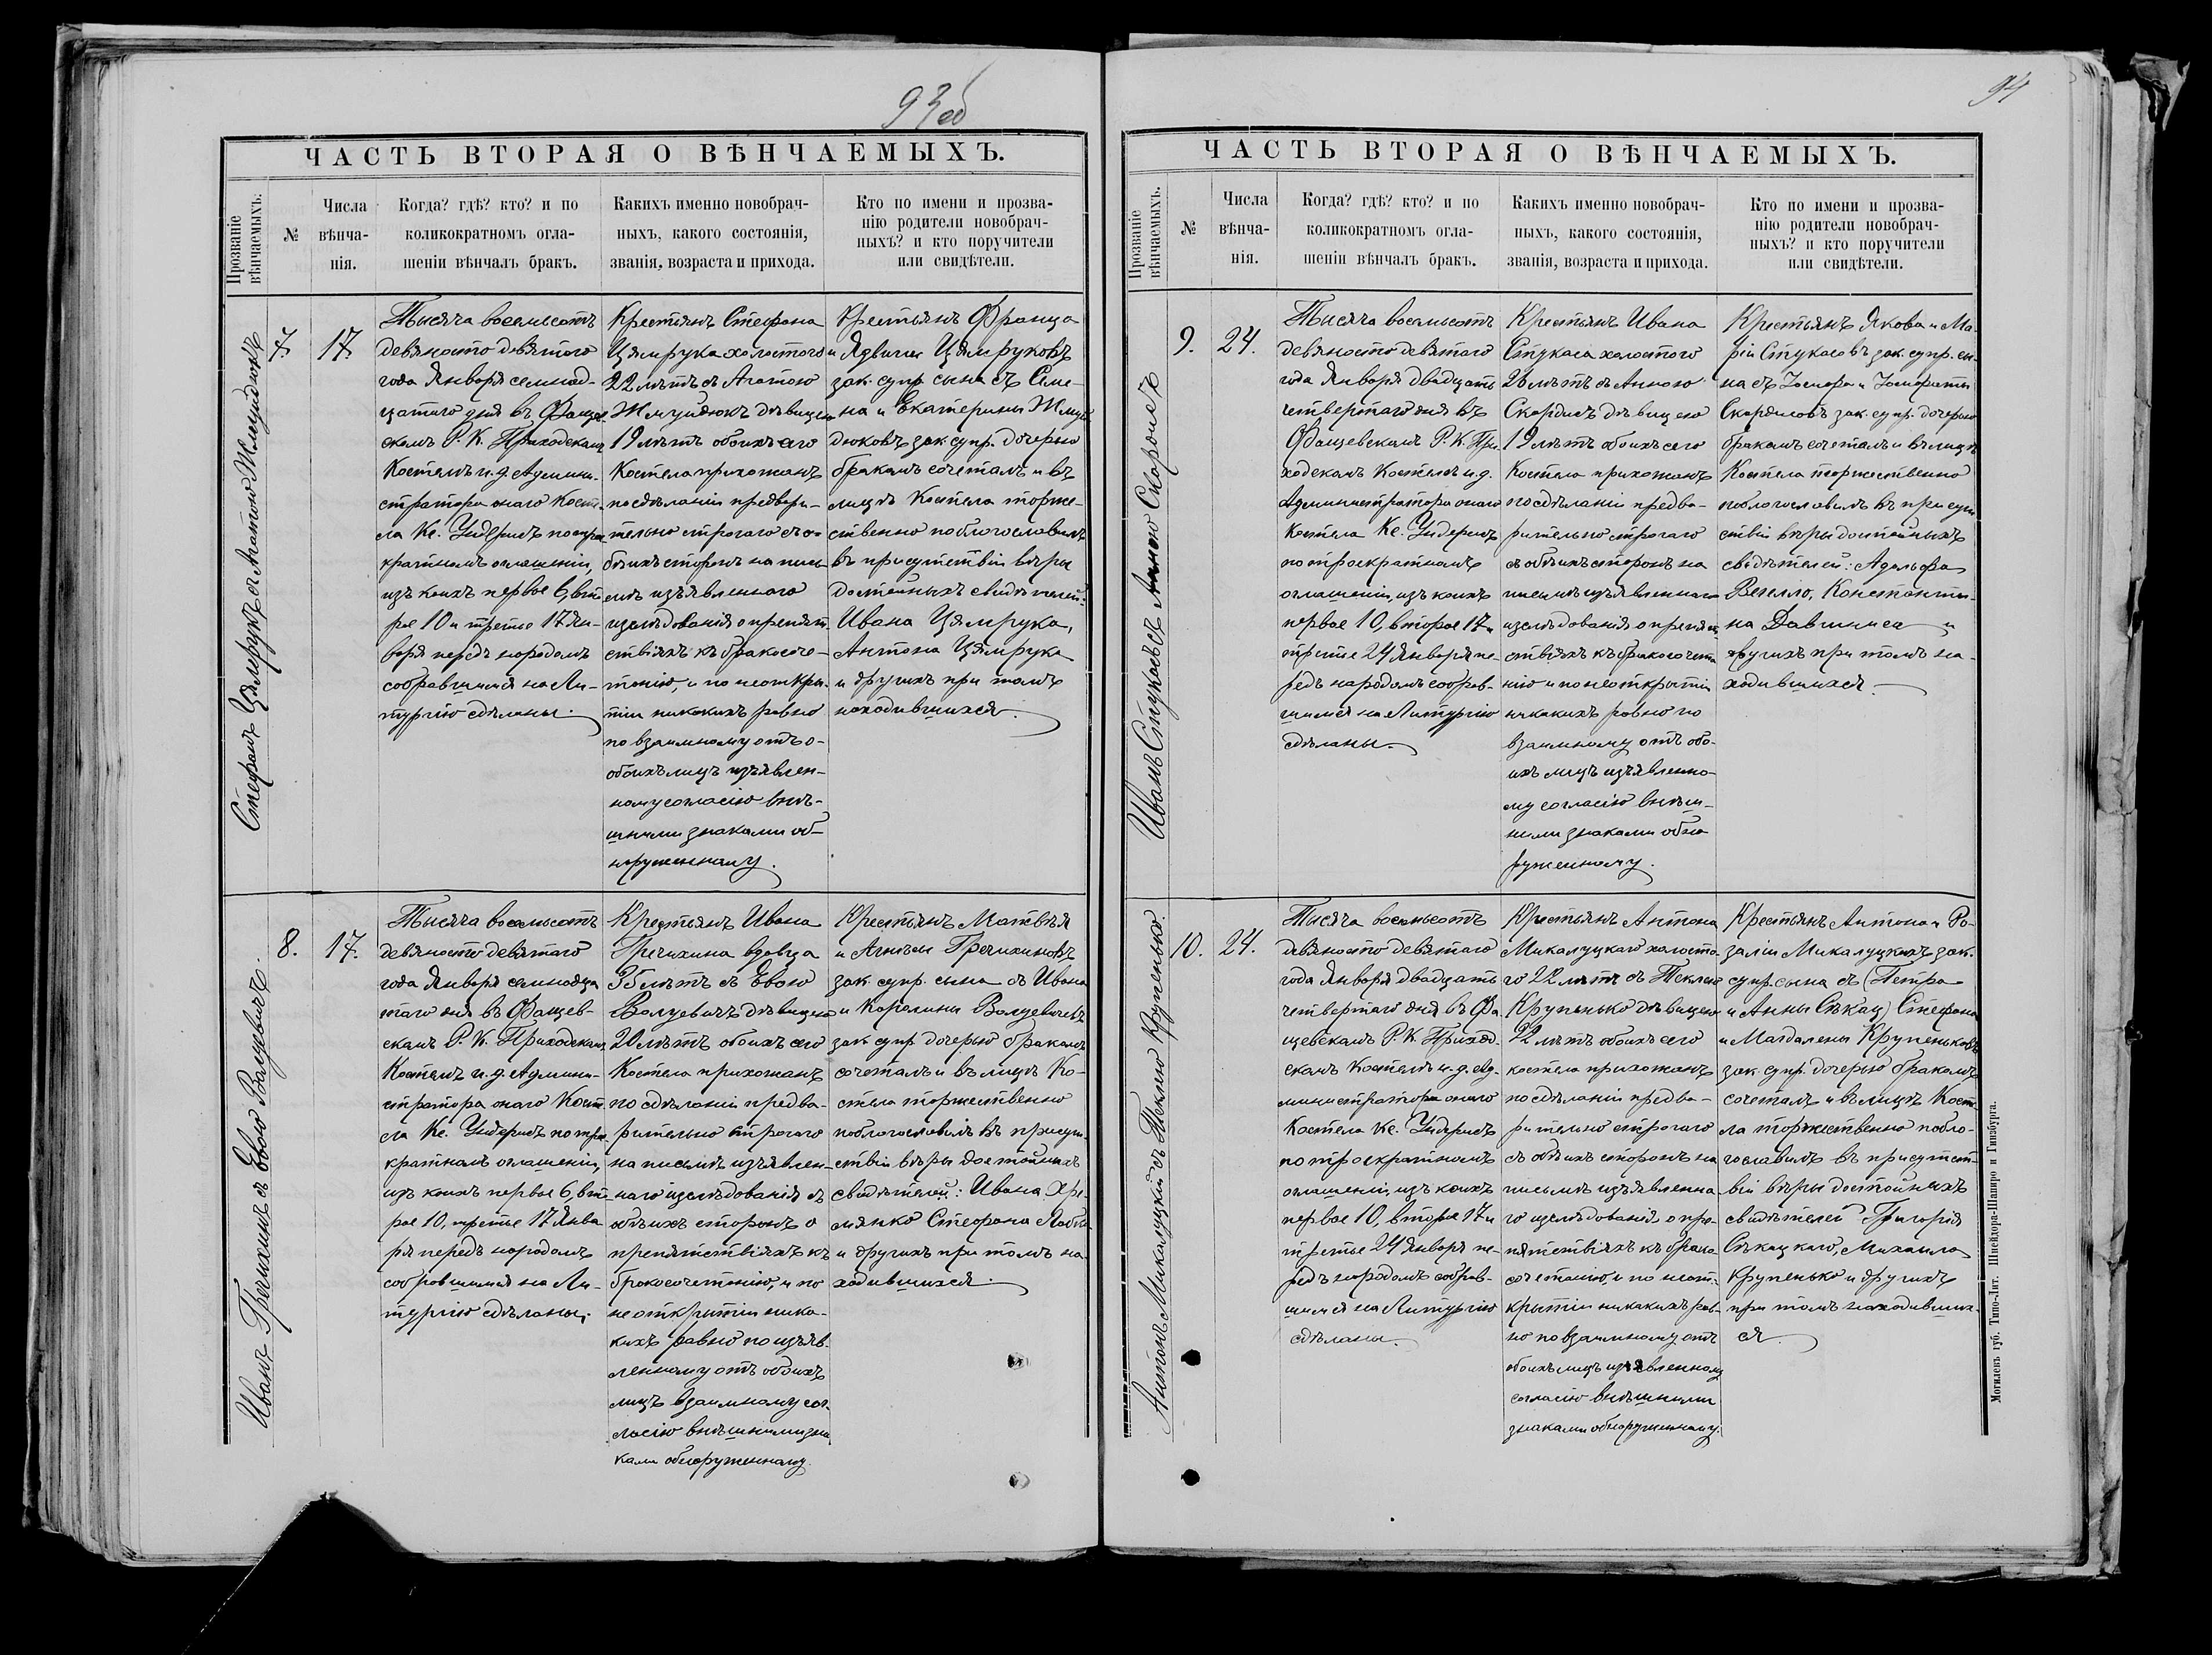 93об
ЧАСТЬ ВТОРАЯ О ВѢНЧАЕМЫХЪ.
Прозваніе
вѣнчаемыхъ.
№
Числа
вѣнча-
нія.
Когда? гдѣ? кто? и по
коликократномъ огла-
шеніи вѣнчалъ бракъ.
Какихъ именно новобрач-
ныхъ, какого состоянія,
званія, возраста и прихода.
Кто по имени и прозва-
нію родители новобрач-
ныхъ? и кто поручители
или свидѣтели.
Стефанъ Цямрукъ съ Агатою Жмуйдюкъ
7.
17.
Тысяча восемьсотъ
девяносто девятого
года Января семнад-
цатаго дня въ Фащев-
скомъ Р. К. Приходскомъ
Костелѣ и. д. Админи-
стратора онаго Косте-
ла Кс. по трое-
кратномъ оглашеніи,
изъ коихъ первое 6, вто-
рое 10 и третье 17 Ян-
варя передъ народомъ
собравшимся на Ли-
тургію сдѣланы.
Крестьянъ Стефана
Цямрука холостого
22 лѣтъ съ Агатою
Жмуйдюкъ дѣвицею
19 лѣтъ обоихъ сего
Костела прихожанъ
по сдѣланіи предвари-
тельно строгаго съ о-
боихъ сторонъ на пись-
мѣ изъявленного
изслѣдованія о препят-
ствіяхъ къ бракосоче-
танію, и по неоткры-
тіи никакихъ равно
по взаимному отъ о-
обоихъ лицъ изъявлен-
ному согласію внѣ-
шними знаками об-
наруженному.
Крестьянъ Франца
и Ядвиги Цямруковъ
зак. супр. сына съ Семе-
на и Екатерины Жмуй-
дюковъ зак. супр. дочерью
бракомъ сочеталъ и въ
лицѣ Костела торже-
ственно поблагословилъ
въ присутствіи вѣры
достойныхъ свидѣтелей:
Ивана Цямрука,
Антона Цямрука
и другихъ при томъ
находившихся.
Иванъ Гречихинъ съ Евою Валуевичъ.
8.
17.
Тысяча восемьсотъ
девяносто девятаго
года Января семнадца
таго дня въ Фащев-
скомъ Р. К. Приходскомъ
Костелѣ и. д. Админи-
стратора онаго Косте-
ла Кс. по трое-
кратномъ оглашеніи,
изъ коихъ первое 6, вто-
рое 10, третье 17 Янва
ря передъ народомъ
собравшимся на Ли-
тургію сдѣланы.
Крестьянъ Ивана
Гречихина вдовца
35 лѣтъ съ Евою
Валуевичъ дѣвицею
20 лѣтъ обоихъ сего
Костела прихожанъ
по сдѣланіи предва-
рительно строгаго
на письмѣ изъявлен-
наго изслѣдованія съ
обѣихъ сторонъ о
препятствіяхъ къ
бракосочетанію, и по
не открытіи ника-
кихъ равно по изъяв-
ленному отъ обоихъ
лицъ взаимному сог-
ласію внѣшними зна
ками обнаруженному.
Крестьянъ Матвѣя
и Агнѣси Гречихиновъ
зак. супр. сына съ Ивана
и Каролины Валуевичевъ
зак. супр. дочерью бракомъ
сочеталъ и въ лицѣ Ко-
стела торжественно
поблагословилъ въ присут-
ствіи вѣры достойныхъ
свидѣтелей: Ивана Хре-
мянко Стефана
и другихъ при томъ на-
ходившихся.
94
ЧАСТЬ ВТОРАЯ О ВѢНЧАЕМЫХЪ.
Прозваніе
вѣнчаемыхъ.
№
Числа
вѣнча-
нія.
Когда? гдѣ? кто? и по
коликократномъ огла-
шеніи вѣнчалъ бракъ.
Какихъ именно новобрач-
ныхъ, какого состоянія,
званія, возраста и прихода.
Кто по имени и прозва-
нію родители новобрач-
ныхъ? и кто поручители
или свидѣтели.
Иванъ Стукасъ съ Анною
9.
24.
Тысяча восемьсотъ
девяносто девятаго
года Января двадцать
четвертаго дня въ
Фащевскомъ Р. К. При-
ходскомъ Костелѣ и. д.
Администратора онаго
Костела Кс.
по троекратномъ
оглашеніи, изъ коихъ
первое 10, второе 17 и
третье 24 Января пе-
редъ народомъ собрав-
шимся на Литургію
сдѣланы.
Крестьянъ Ивана
Стукаса холостого
26 лѣтъ съ Анною
дѣвицею
19 лѣтъ обоихъ сего
Костела прихожанъ
по сдѣланіи предва-
рительно строгаго
съ обѣихъ сторонъ на
письмѣ изъявленнаго
изслѣдованія о препят
ствіяхъ къ бракосочета
нію и по неоткрытіи
никакихъ равно по
взаимному отъ обо-
ихъ лицъ изъявленно-
му согласію внѣш-
ними знаками обна
руженному.
Крестьянъ Якова и Ма-
ріи Стукасовъ зак. супр. сы-
на съ Іосифа и Іосифаты
зак. супр. дочерью
бракомъ сочеталъ и въ лицѣ
Костела торжественно
поблагословилъ въ присут
ствіи вѣры достойныхъ
свидѣтелей: Адольфа
Константи-
на и
другихъ при томъ на-
ходившихся.
Антонъ Микалуцкій съ Теклею Крупенько.
10.
24.
Тысяча восемьсотъ
девяносто девятаго
года Января двадцать
четвертаго дня въ Фа
щевскомъ Р. К. Приход-
скомъ Костелѣ и. д. Ад-
министратора онаго
Костела Кс.
по троекратномъ
оглашеніи, изъ коихъ
первое 10, второе 17 и
третье 24 Января пе-
редъ народомъ собрав-
шимся на Литургію
сдѣланы.
Крестьянъ Антона
Микалуцкаго холосто-
го 22 лѣтъ съ Теклею
Крупенько дѣвицею
22 лѣтъ обоихъ сего
костела прихожанъ
по сдѣланіи предва-
рительно строгаго
съ обѣихъ сторонъ на
письмѣ изъявленна-
го изслѣдованія о пре-
пятствіяхъ къ брако
сочетанію, и по неот-
крытіи никакихъ рав-
но по взаимному отъ
обоихъ лицъ изъявленному
согласію внѣшними
знаками обнаруженному.
Крестьянъ Антона и Ро-
заліи Микалуцкихъ зак.
супр. сына съ (Петра
и Анны Сѣкац) Стефана
и Магдалены Крупеньковъ
зак. супр. дочерью бракомъ
сочеталъ и въ лицѣ Косте-
ла торжественно побла-
гословилъ въ присутст-
віи вѣры достойныхъ
свидѣтелей Григорія
Сѣкацкаго, Михаила
Крупенько и другихъ
при томъ находивших-
ся.
Могилевъ губ. Типо-Лит. Шнейдора-Шапиро и Гинзбурга.